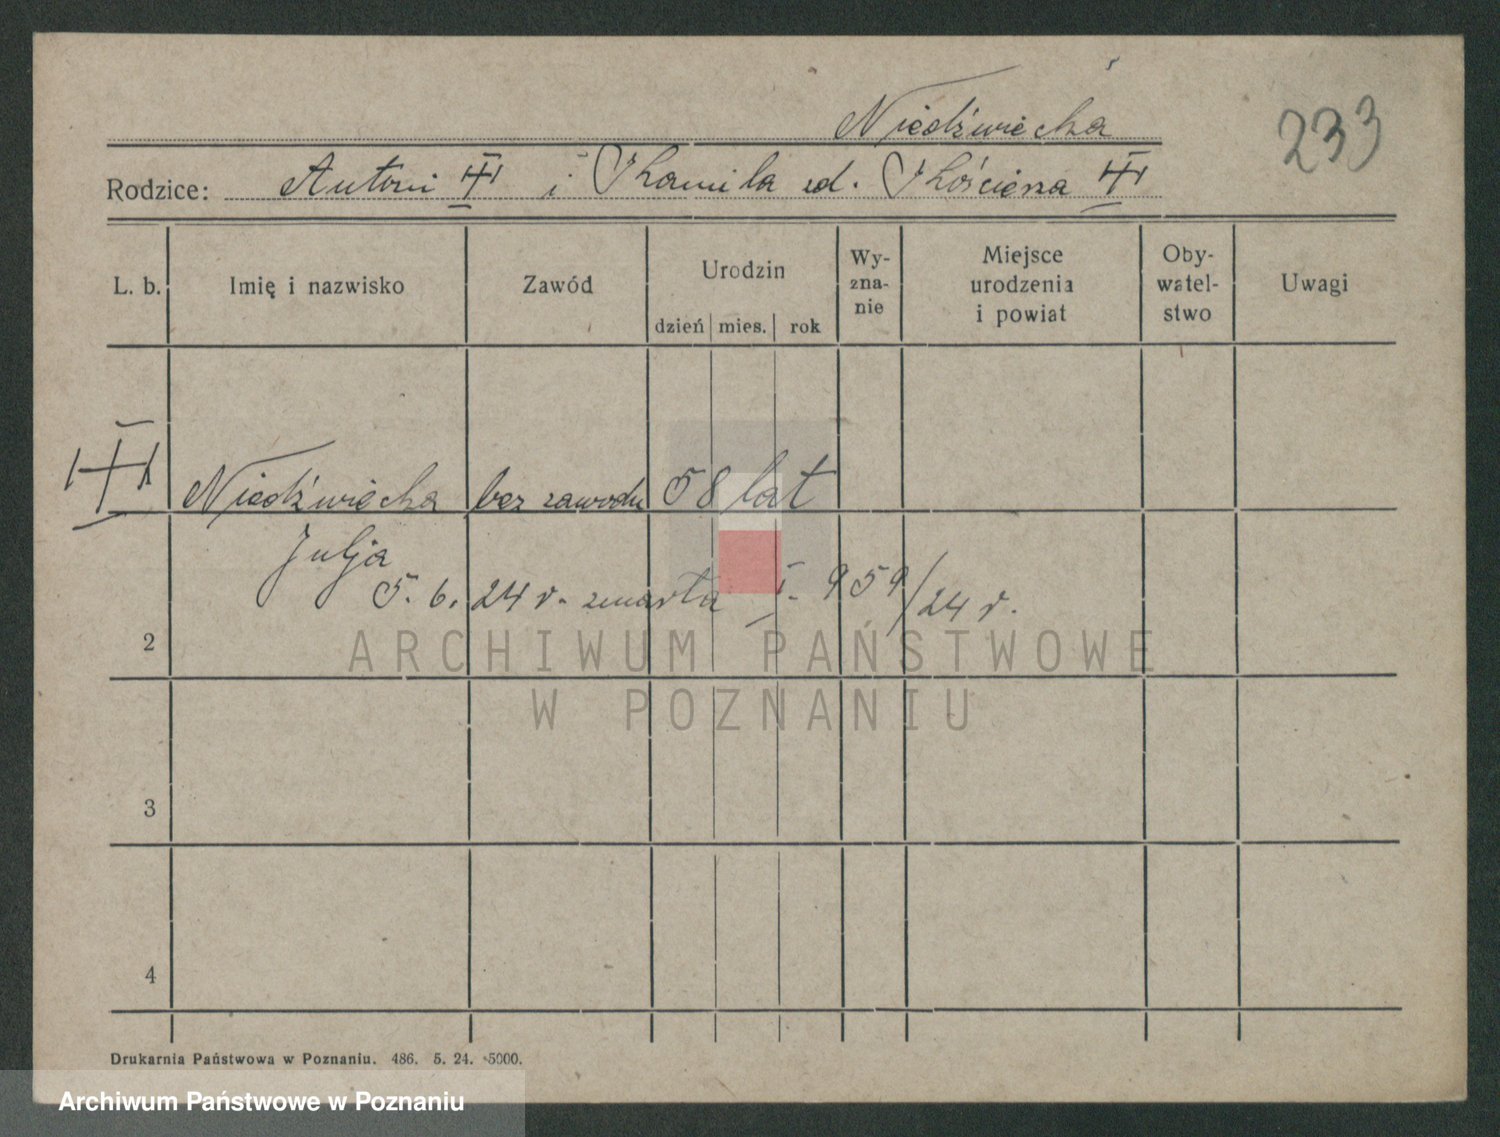 Niedźwiecka
233
Rodzice: Antoni i Kamila zd. Kościesza
L. b. Imię i nazwisko Zawód Urodzin dzień mies. rok Wy-zna-nie Miejsce urodzenia i powiat Oby-watel-stwo Uwagi
Niedźwiecka bez zawodu 58 lat
Julja
5. 6. 24 r. zmarła I. 959/24 r.
2
ARCHIWUM PAŃSTWOWE
W POZNANIU
3
4
Drukarnia Państwowa w Poznaniu. 486. 5. 24. 5000.
Archiwum Państwowe w Poznaniu